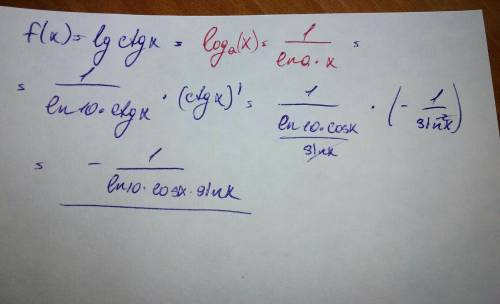 f(x) = lg ctgx = log_a(x) = 1/(ln a · x) =
= 1/(ln10·ctgx) · (ctgx)' = 1/((ln10·cosx)/sinx) · (- 1/sin²x)
= - 1/(ln10·cosx·sinx)